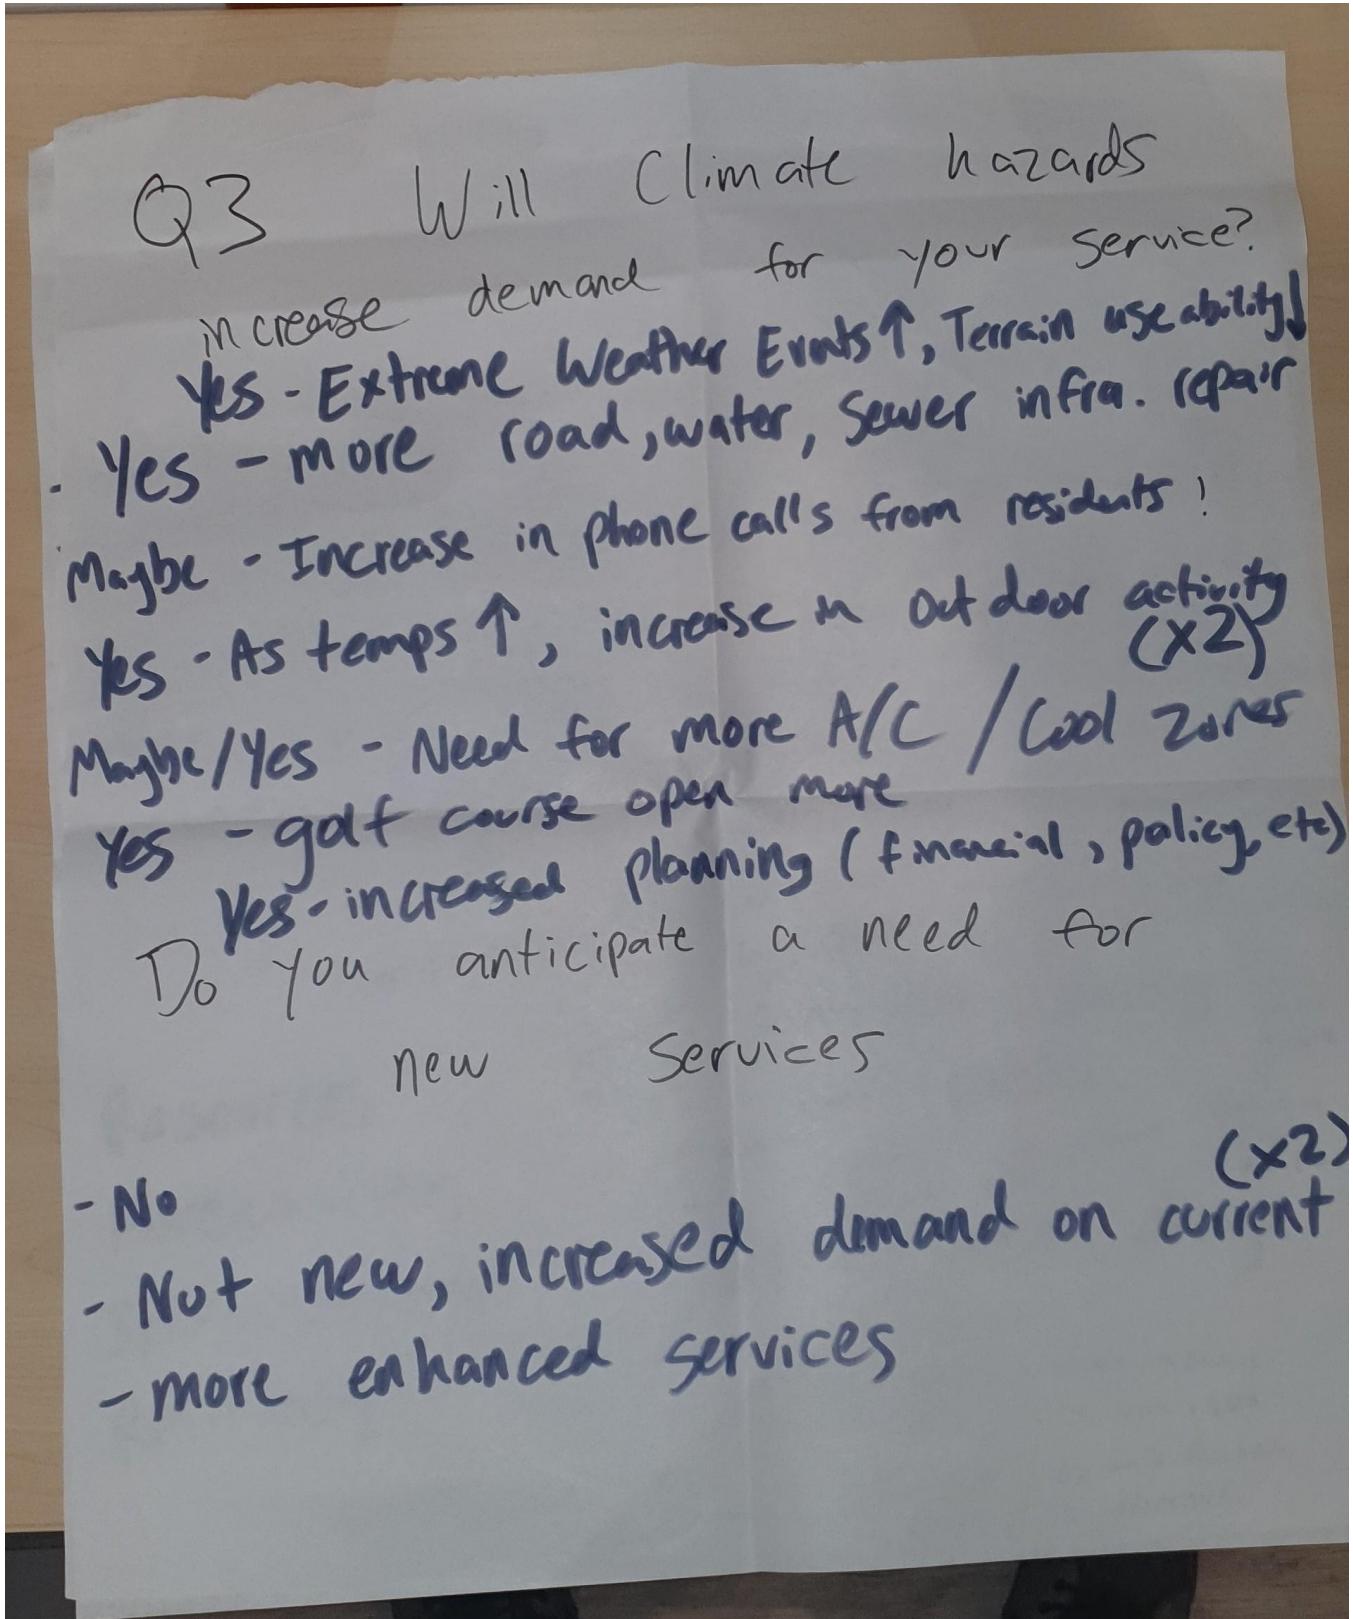 Q3 Will Climate hazards
increase demand for your service?
Yes - Extreme Weather Events ↑, Terrain useability ↓
· Yes - more road, water, sewer infra. repair
Maybe - Increase in phone calls from residents!
Yes - As temps ↑, increase in outdoor activity
(x2)
Maybe/Yes - Need for more A/C / Cool Zones
Yes - golf course open more
Yes - increased planning (financial, policy, etc)
Do you anticipate a need for
new Services
(x2)
- No
- Not new, increased demand on current
- more enhanced services